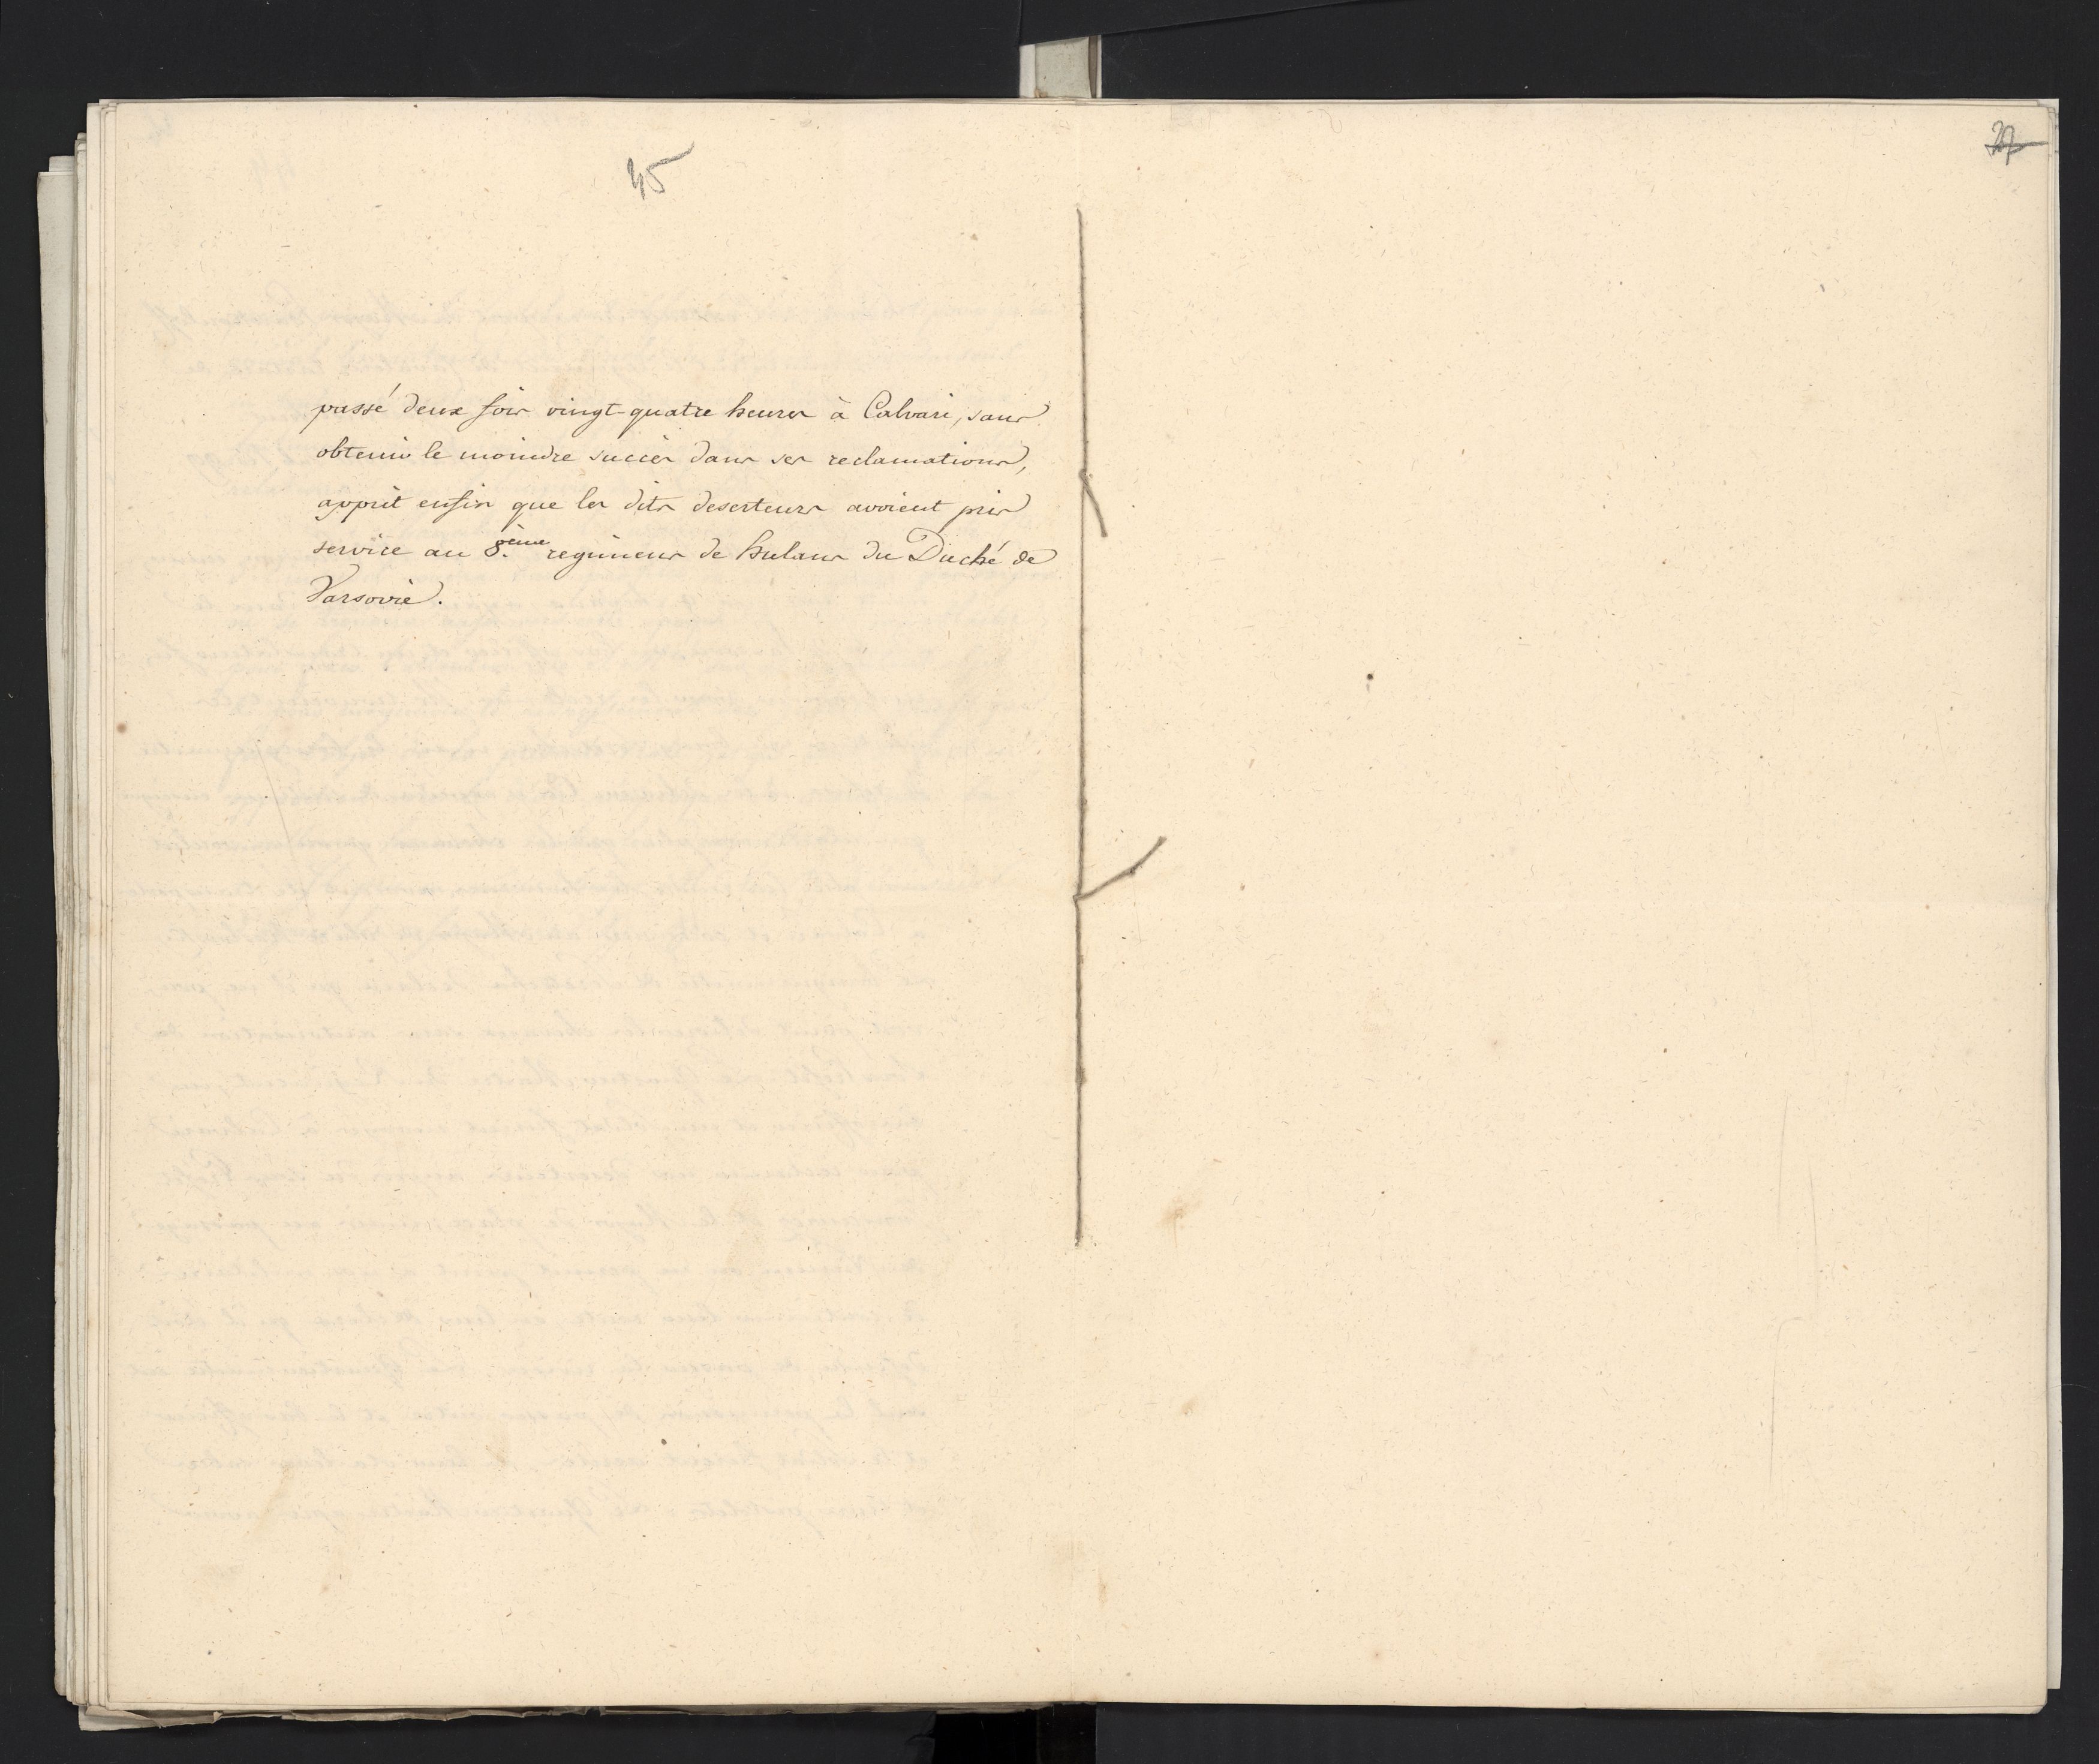 45
27
passé deux fois vingt-quatre heures à Calvari, sans
obtenir le moindre succès dans ses reclamations,
apprit enfin que les dits deserteurs avoient pris
service au 8.ème regimens de hulans du Duché de
Varsovie.